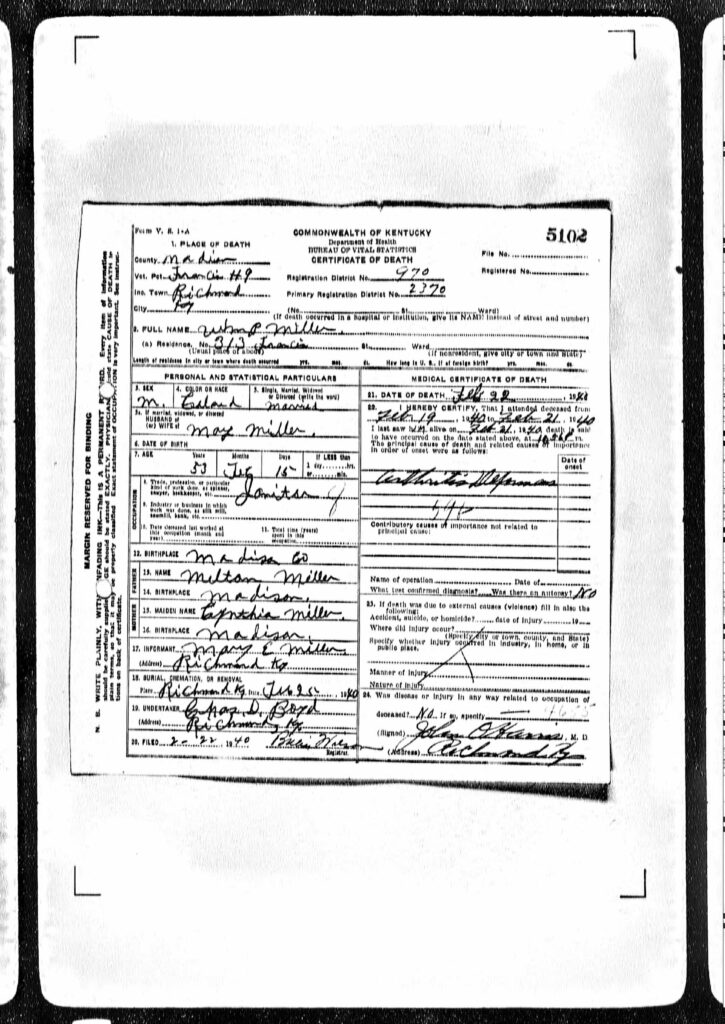 Form V. S. 1-A
COMMONWEALTH OF KENTUCKY
Department of Health
BUREAU OF VITAL STATISTICS
CERTIFICATE OF DEATH
5102
File No.
Registered No.
1. PLACE OF DEATH
County Madison
Vot. Pct. Francis H9
Inc. Town Richmond
City Ky
Registration District No. 970
Primary Registration District No. 2370
(No. St. Ward)
(If death occurred in a hospital or institution, give its NAME instead of street and number)
2. FULL NAME Miller
(a) Residence. No. 313 Francis St. Ward
(Usual place of abode) (If nonresident, give city or town and State)
Length of residence in city or town where death occurred yrs. mos. ds. How long in U. S., if of foreign birth? yrs. mos. ds.
PERSONAL AND STATISTICAL PARTICULARS
3. SEX
M.
4. COLOR OR RACE
5. Single, Married, Widowed
or Divorced (write the word)
Married
5a. If married, widowed, or divorced
HUSBAND of
(or) WIFE of May Miller
6. DATE OF BIRTH
7. AGE Years Months Days If LESS than
1 day, hrs.
or min.
53 15
OCCUPATION
8. Trade, profession, or particular
kind of work done, as spinner,
sawyer, bookkeeper, etc.
Janitor
9. Industry or business in which
work was done, as silk mill,
sawmill, bank, etc.
10. Date deceased last worked at
this occupation (month and
year)
11. Total time (years)
spent in this
occupation
12. BIRTHPLACE Madison Co
FATHER
13. NAME Milton Miller
14. BIRTHPLACE Madison
MOTHER
15. MAIDEN NAME Cynthia Miller
16. BIRTHPLACE Madison
17. INFORMANT Mary E Miller
(Address) Richmond Ky
18. BURIAL, CREMATION, OR REMOVAL
Place Richmond Ky Date Feb 25 1940
19. UNDERTAKER Chas D. Boyd
(Address) Richmond Ky.
20. FILED 2-22 1940
Registrar.
MEDICAL CERTIFICATE OF DEATH
21. DATE OF DEATH Feb 22 1940
22. I HEREBY CERTIFY, That I attended deceased from
Feb 19 1940 to Feb 21 1940
I last saw alive on Feb 21 1940 death is said
to have occurred on the date stated above, at m.
The principal cause of death and related causes of importance
in order of onset were as follows:
Date of
onset
Arthritis Deformans
Contributory causes of importance not related to
principal cause:
Name of operation Date of
What test confirmed diagnosis? Was there an autopsy? No
23. If death was due to external causes (violence) fill in also the
following:
Accident, suicide, or homicide? date of injury 19
Where did injury occur?
(Specify city or town, county, and State)
Specify whether injury occurred in industry, in home, or in
public place.
Manner of injury
Nature of injury
24. Was disease or injury in any way related to occupation of
deceased? No If so, specify
(Signed) John O Harris, M. D.
(Address) Richmond Ky
MARGIN RESERVED FOR BINDING